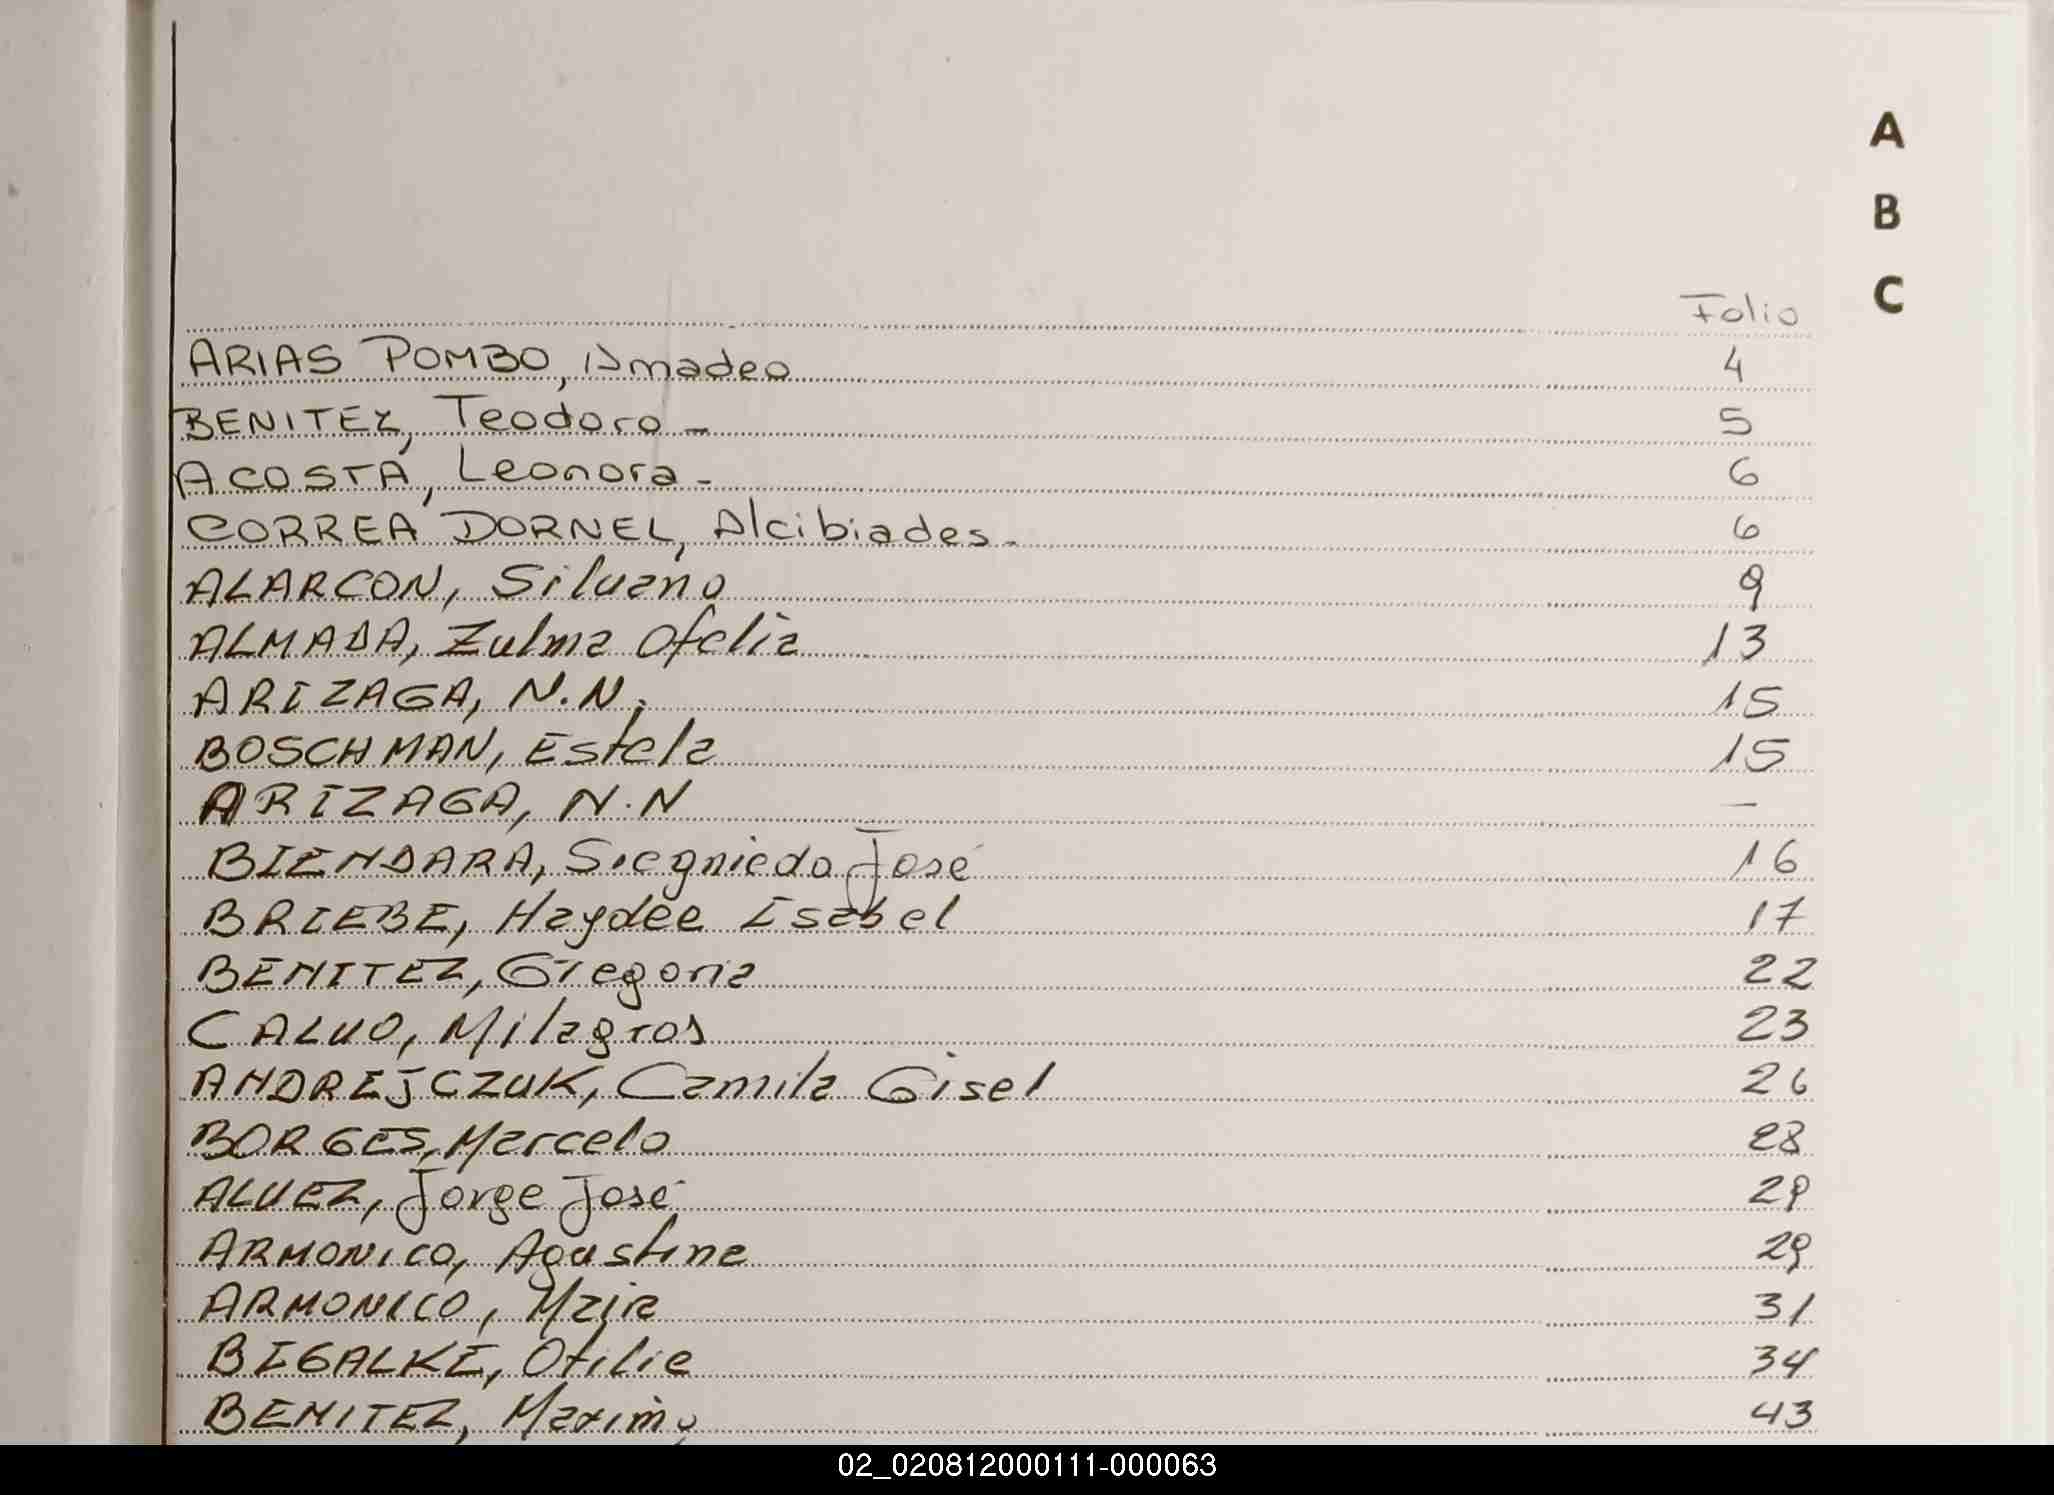 A
B
C
Folio
ARIAS POMBO, Amadeo 4
BENITEZ, Teodoro - 5
ACOSTA, Leonora - 6
CORREA DORNEL, Alcibiades - 6
ALARCON, Silvano 9
ALMADA, Zulma Ofelia 13
ARIZAGA, N.N. 15
BOSCHMAN, Estela 15
ARIZAGA, N.N —
BIENDARA, José 16
BRIEBE, Haydée Isabel 17
BENITEZ, Gregoria 22
CALVO, Milagros 23
ANDREJCZUK, Camila Gisel 26
BORGES, Marcelo 28
ALVEZ, Jorge José 29
ARMONICO, Agustina 29
ARMONICO, 31
BIGALKE, Otilie 34
BENITEZ, 43
02_020812000111-000063